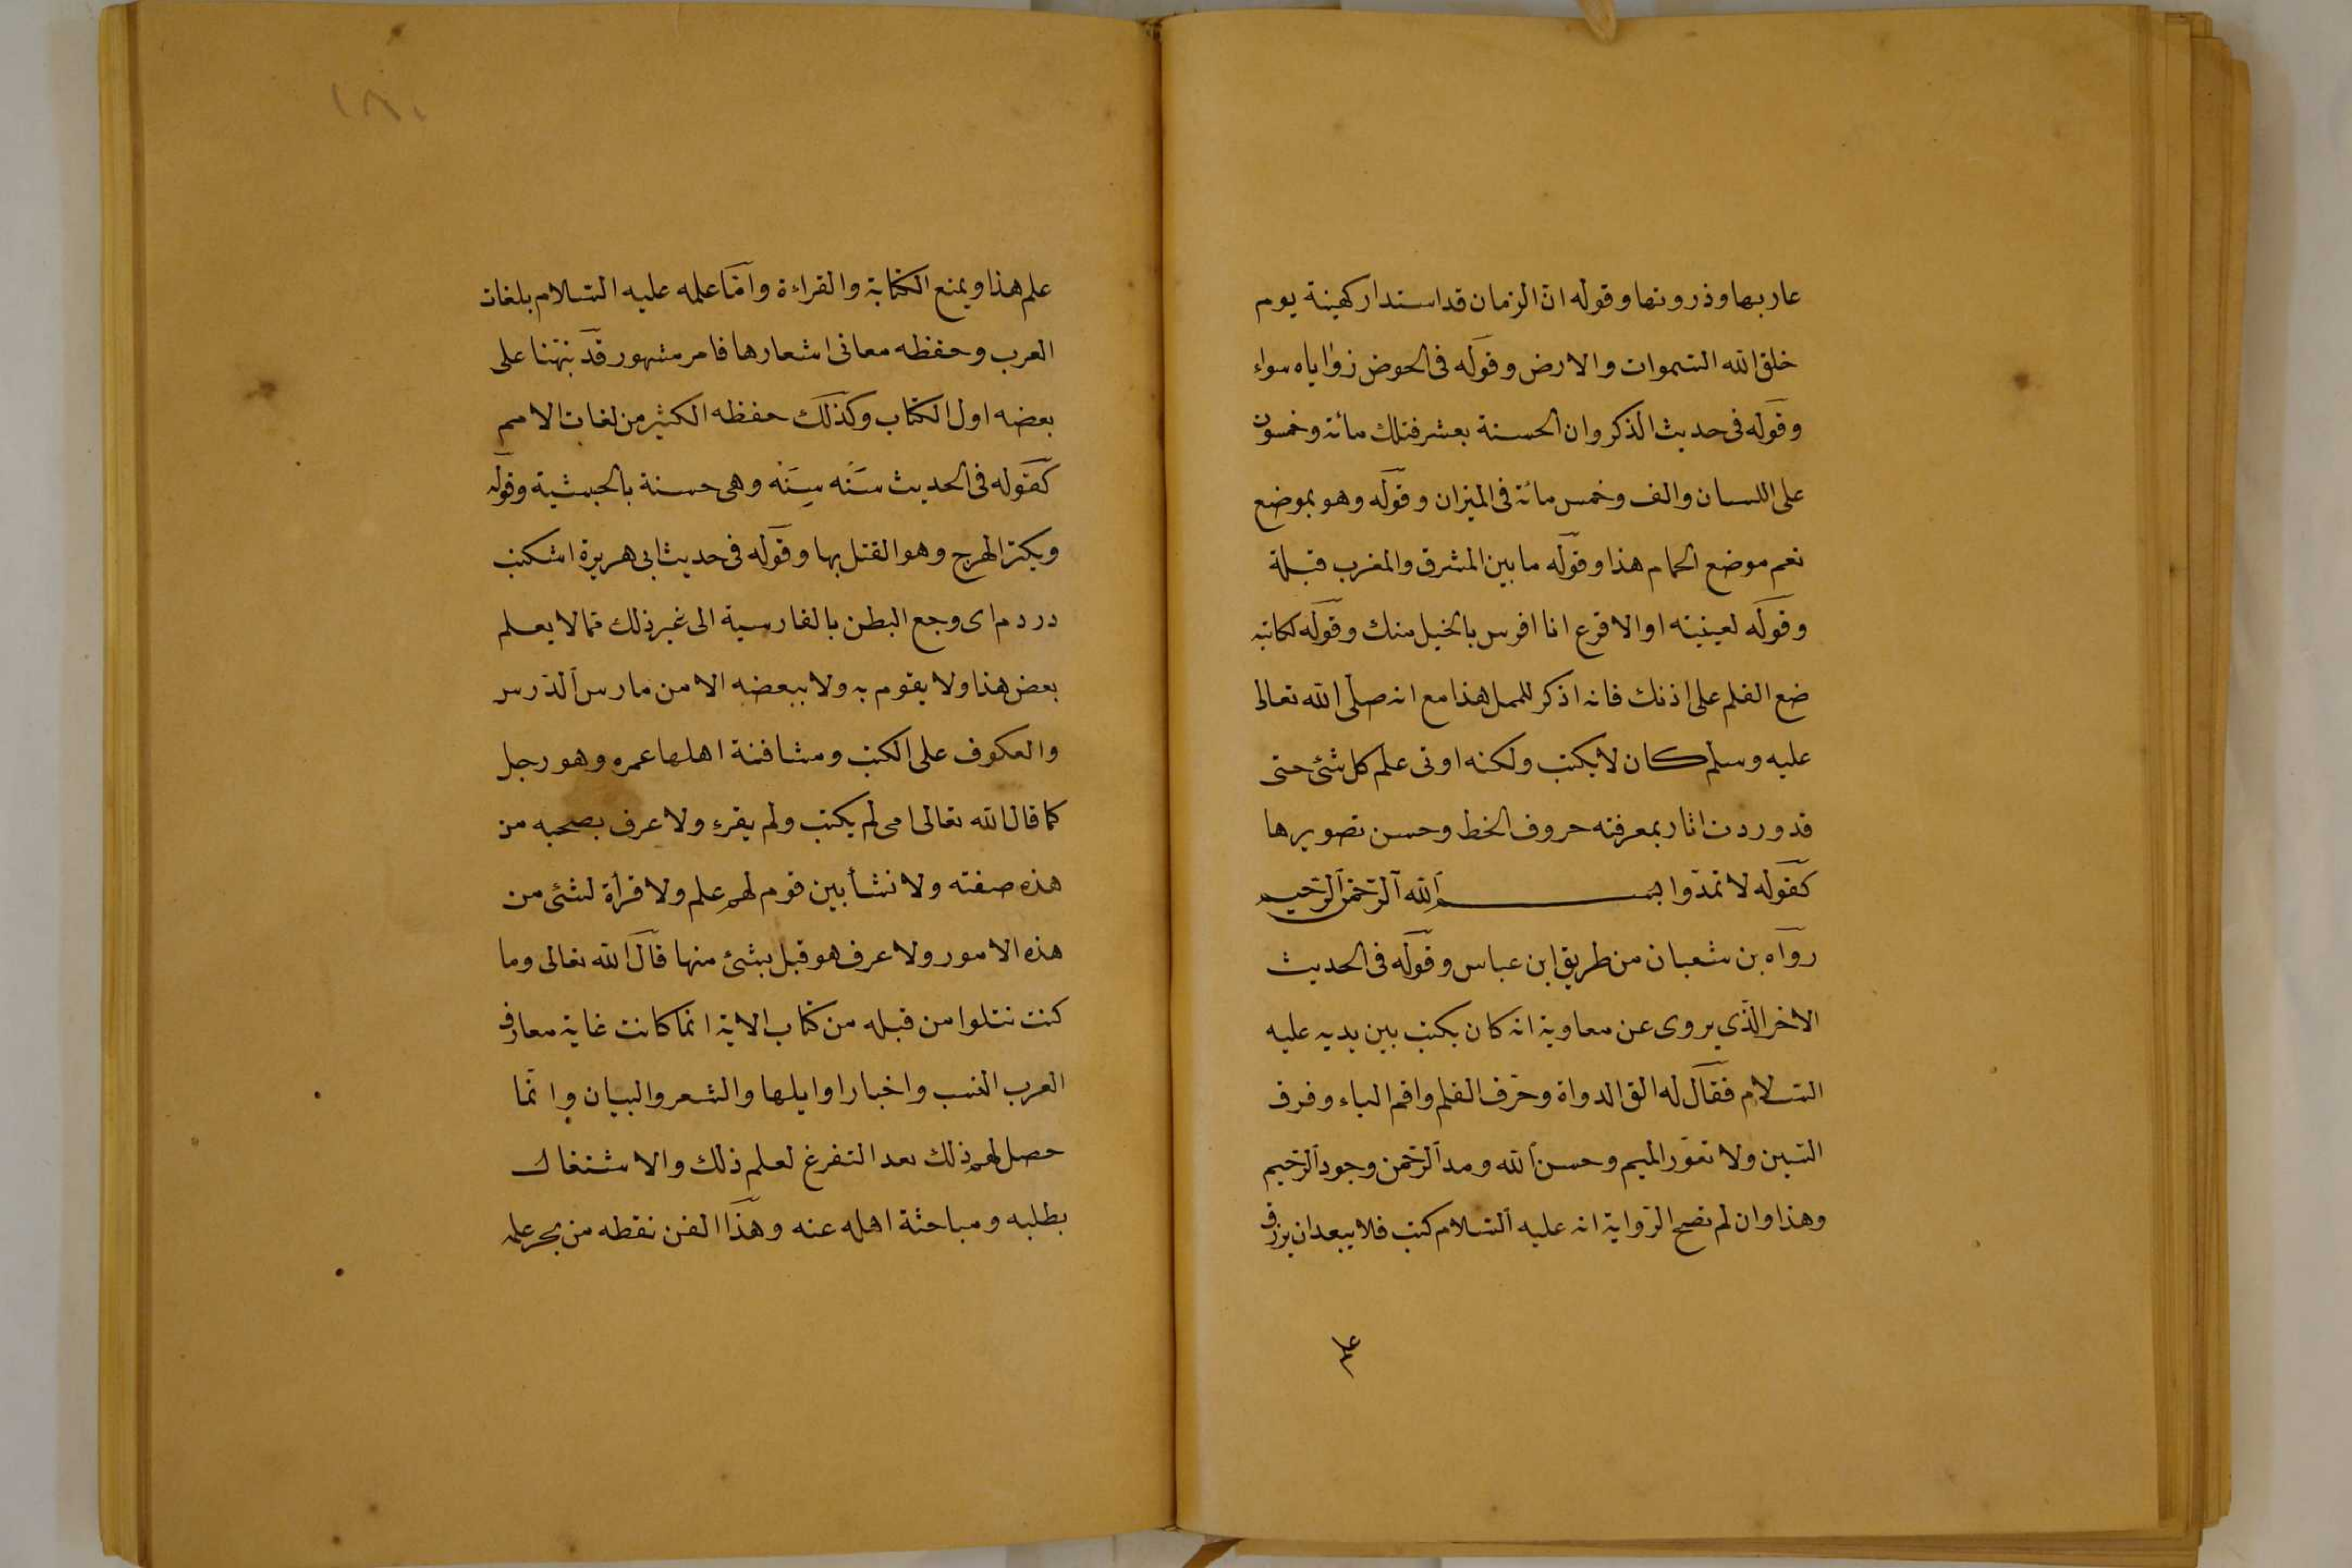 عاربها وذروتها وقوله انّ الزمان قد استدار كهيئة يوم
خلق الله السّموات والارض وقوله فى الحوض زواياه سواء
وقوله فى حديث الذكر وان الحسنة بعشر فتلك مائة وخمسون
على اللسان والف وخمس مائة فى الميزان وقوله وهو بموضع
نعم موضع الحمام هذا وقوله ما بين المشرق والمغرب قبلة
وقوله لعيينه او الاقرع انا افرس بالخيل منك وقوله لكاتبه
ضع القلم على اذنك فانه اذكر للممل هذا مع انه صلّى الله تعالى
عليه وسلم كان لا يكتب ولكنه اوتى علم كل شئ حتى
قد وردت اثار بمعرفته حروف الخط وحسن تصويرها
كقوله لا تمدّوا بسم الله الرّحمن الرّحيم
رواه بن شعبان من طريق ابن عباس وقوله فى الحديث
الاخر الّذي يروى عن معاوية انه كان يكتب بين يديه عليه
السّلام فقال له الق الدواة وحرّف القلم واقم الباء وفرق
السّين ولا تعوّر الميم وحسن الله ومد الرّحمن وجود الرّحيم
وهذا وان لم تصح الرّواية انه عليه السّلام كتب فلا يبعد ان يرزق
علم
١٨٠
علم هذا ويمنع الكتابة والقراءة وامّا علمه عليه السّلام بلغات
العرب وحفظه معانى اشعارها فامر مشهور قد نبّهنا على
بعضه اول الكتاب وكذلك حفظه الكثير من لغات الامم
كقوله فى الحديث سَنَه سِنَه وهى حسنة بالحبشية وقوله
ويكثر الهرج وهو القتل بها وقوله فى حديث ابى هريرة اشكنب
دردم اى وجع البطن بالفارسية الى غير ذلك ممّا لا يعلم
بعض هذا ولا يقوم به ولا ببعضه الا من مارس الدّرس
والعكوف على الكتب ومثافنة اهلها عمره وهو رجل
كما قال الله تعالى امى لم يكتب ولم يقرء ولا عرف بصحبه من
هذه صفته ولا نشأ بين قوم لهم علم ولا قرأة لشئ من
هذه الامور ولا عرف هو قبل بشئ منها قال الله تعالى وما
كنت تتلوا من قبله من كتاب الاية انما كانت غاية معارف
العرب النسب واخبار اوايلها والشعر والبيان وانّما
حصل لهم ذلك بعد التفرغ لعلم ذلك والاشتغال
بطلبه ومباحثة اهله عنه وهذا الفن نقطه من بحر علمه